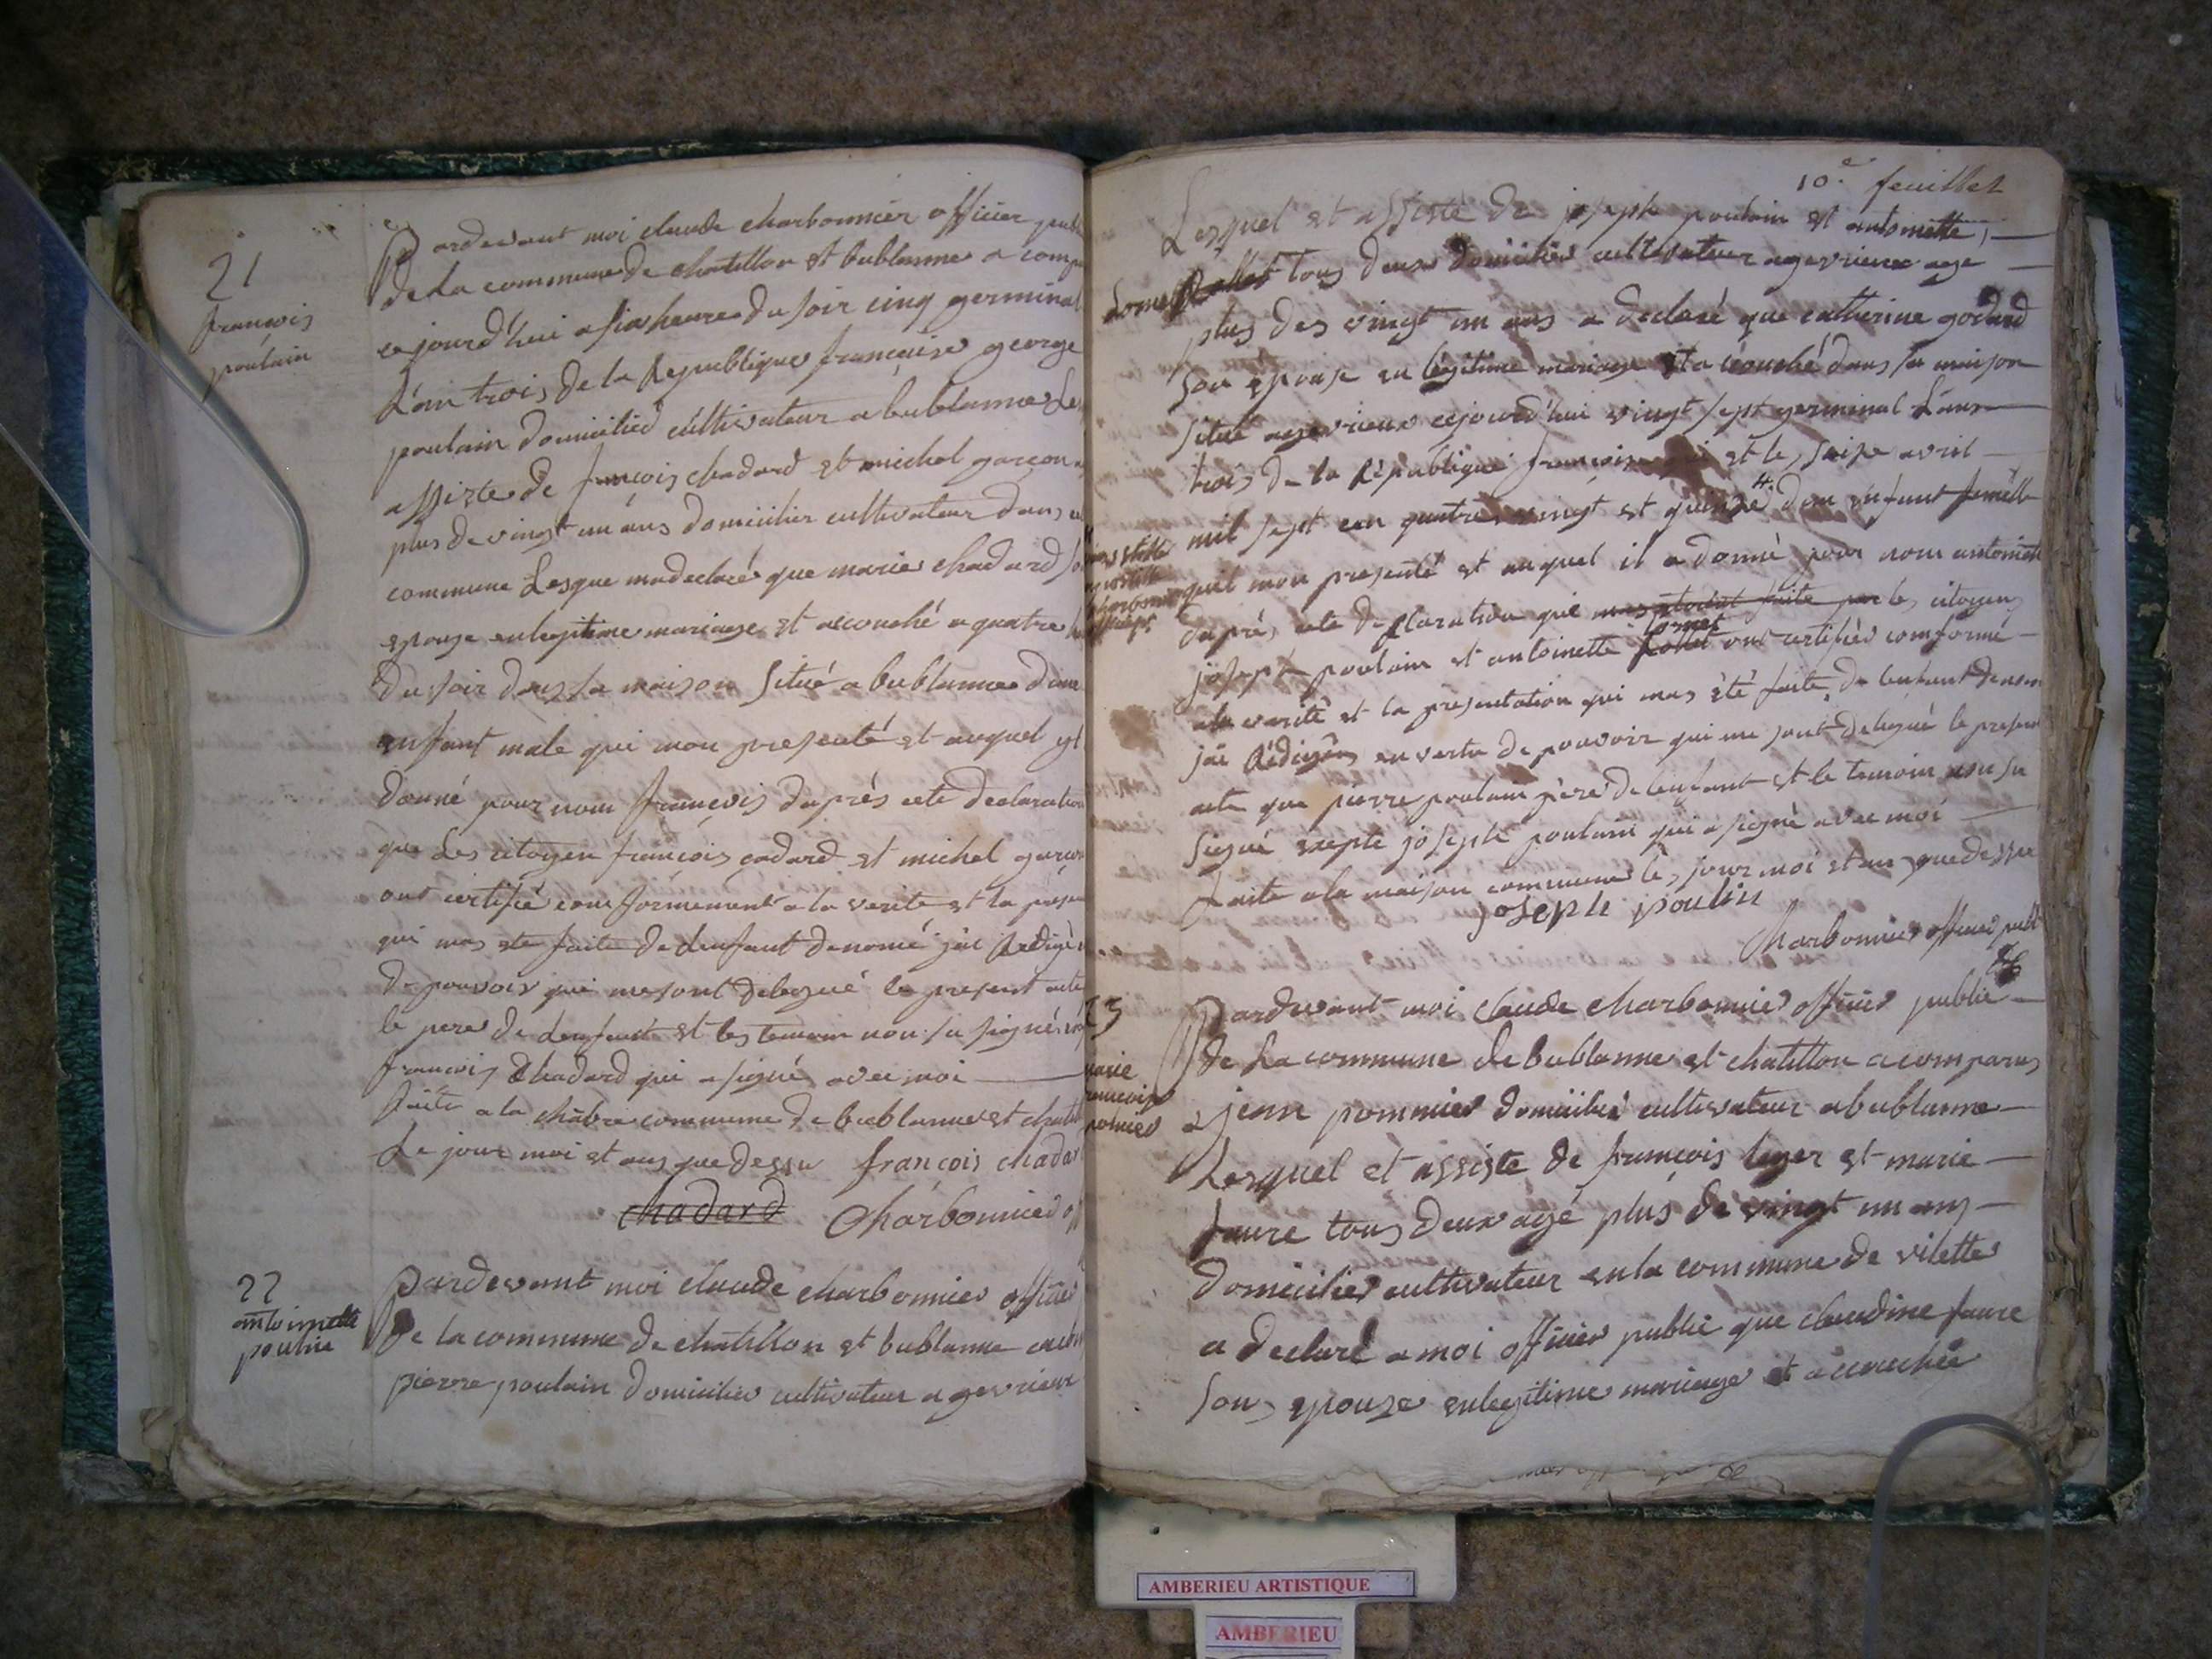 21
francois
poulain
Pardevant moi claude charbonnier officier publ
de La commune de chatillon et bublanne a comp
cejourd'hui a six heure du soir cinq germinal
L'an trois de la Republique française george
poulain domicilied cultivateur a bublanne Les
assiste de françois chadard et michel garçon
plus de vingt un ans domicilier cultivateur dans
commune Lesque ma declaré que marie chadard so
epouze en legitime mariage et accouché a quatre
du soir dans la maison situé a bublanne dun
enfant male qui mon presenté et auquel yl
donné pour nom francois daprés cete declaration
que Les citoyen françois çadard et michel garcon
ont certifié conformement a la verite et la prese
qui mas ete faite de denfant denomé jai Redigé
de pouvoir qui me sont delegué le present acte
le pere de denfant et les temoin non su signé
francois Chadard qui a signé avec moi
faite a la chabre commune de bublanne et chatil
Le jour moi et ans que dessu françois chadar
chadard Charbonnier
22
antoinette
poulin
Pardevant moi claude charbonnier officier
de la commune de chatillon et bublanne
pierre poulain domicilier cultivateur a gevrieux
10.e feuillet
Lesquel et assisté de joseph poulain et antoinette,
tous deux domicilier cultivateur a gevrieux age
plus des vingt un ans a declaré que catherine godard
son epouse en légitime mariage et a acouché dans sa maison
situé a gevrieux cejourd'hui vingt sept germinal L'ans
trois de la République françoise et le seize avril
mil sept cen quatre vingt et quinze dun enfant femelle
quil mon presenté et auquel il a donné pour nom antoinette
daprés cete declaration que les citoyens
joseph poulain et antoinette ont certifiér comformé
ala verité et la presentation qui mas été faite de lenfant denom
jai Rédigér en vertu de pouvoir qui me sont delegué le present
acte que pierre poulain pére de lenfant et le temoin non su
signé exepte joseph poulain qui a signé avec moi
faite a la maison commune le jour moi et an que dessu
joseph poulin
Charbonnier officier publ
23
marie
francoise
pomier
Pardevant moi claude charbonnier officier public
de La commune de bublanne et chatillon a comparus
jean pommier domicilier cultivateur a bublanne
Lesquel et assiste de francois leger et marie
faure tous deux agé plus de vingt un ans
domicilier cultivateur en la commune de vilette
a declaré a moi officier public que claudine faure
son epouze en legitime mariage et acouchée
AMBERIEU ARTISTIQUE
AMBERIEU